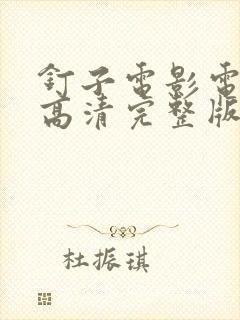 钉子電影電
高清完整版
杜振琪